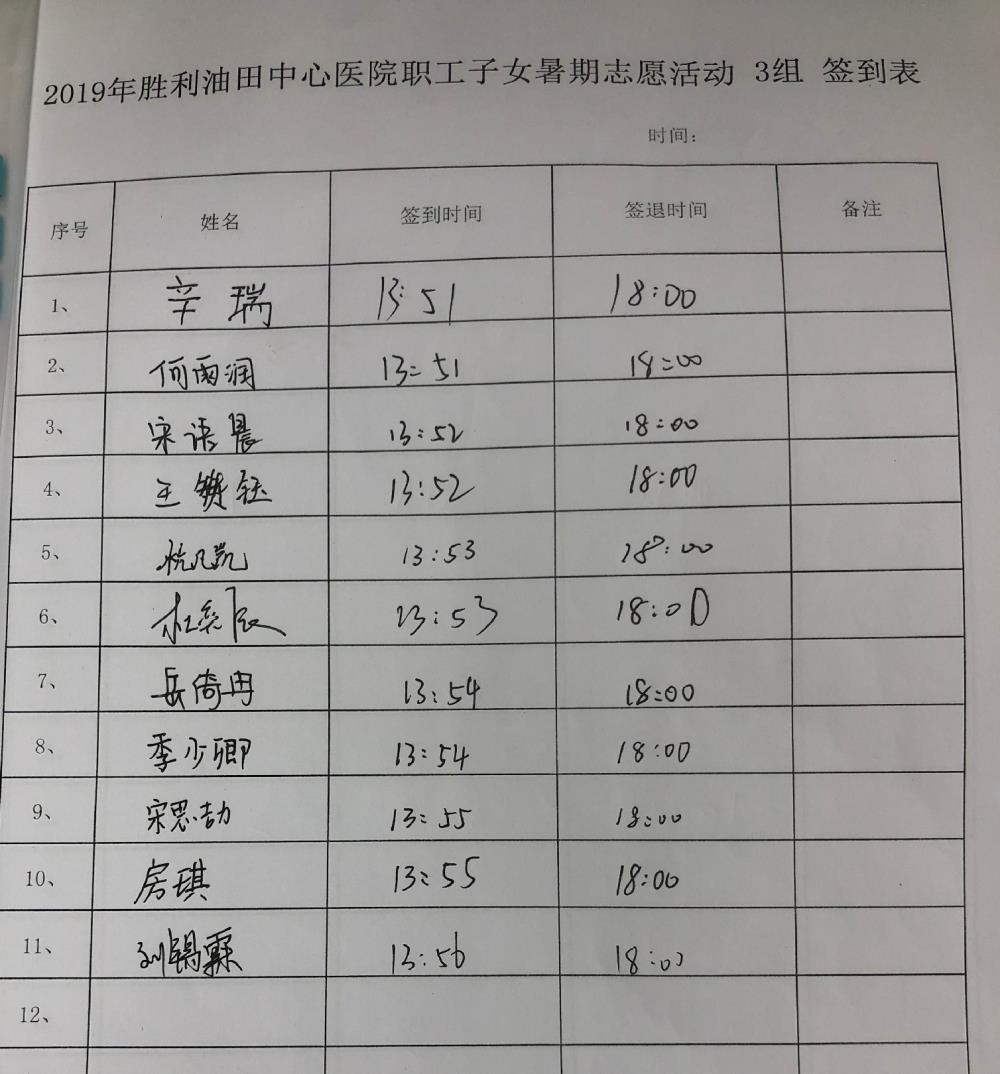 2019年胜利油田中心医院职工子女暑期志愿活动 3组 签到表
时间:
序号 姓名 签到时间 签退时间 备注
1、 辛瑞 13:51 18:00
2、 何雨润 13:51 18:00
3、 宋语晨 13:52 18:00
4、 王 钰 13:52 18:00
5、 杭凡凯 13:53 18:00
6、 杜奕辰 13:53 18:00
7、 岳倚冉 13:54 18:00
8、 季少卿 13:54 18:00
9、 宋思劼 13:55 18:00
10、 房琪 13:55 18:00
11、 刘锡霖 13:56 18:00
12、